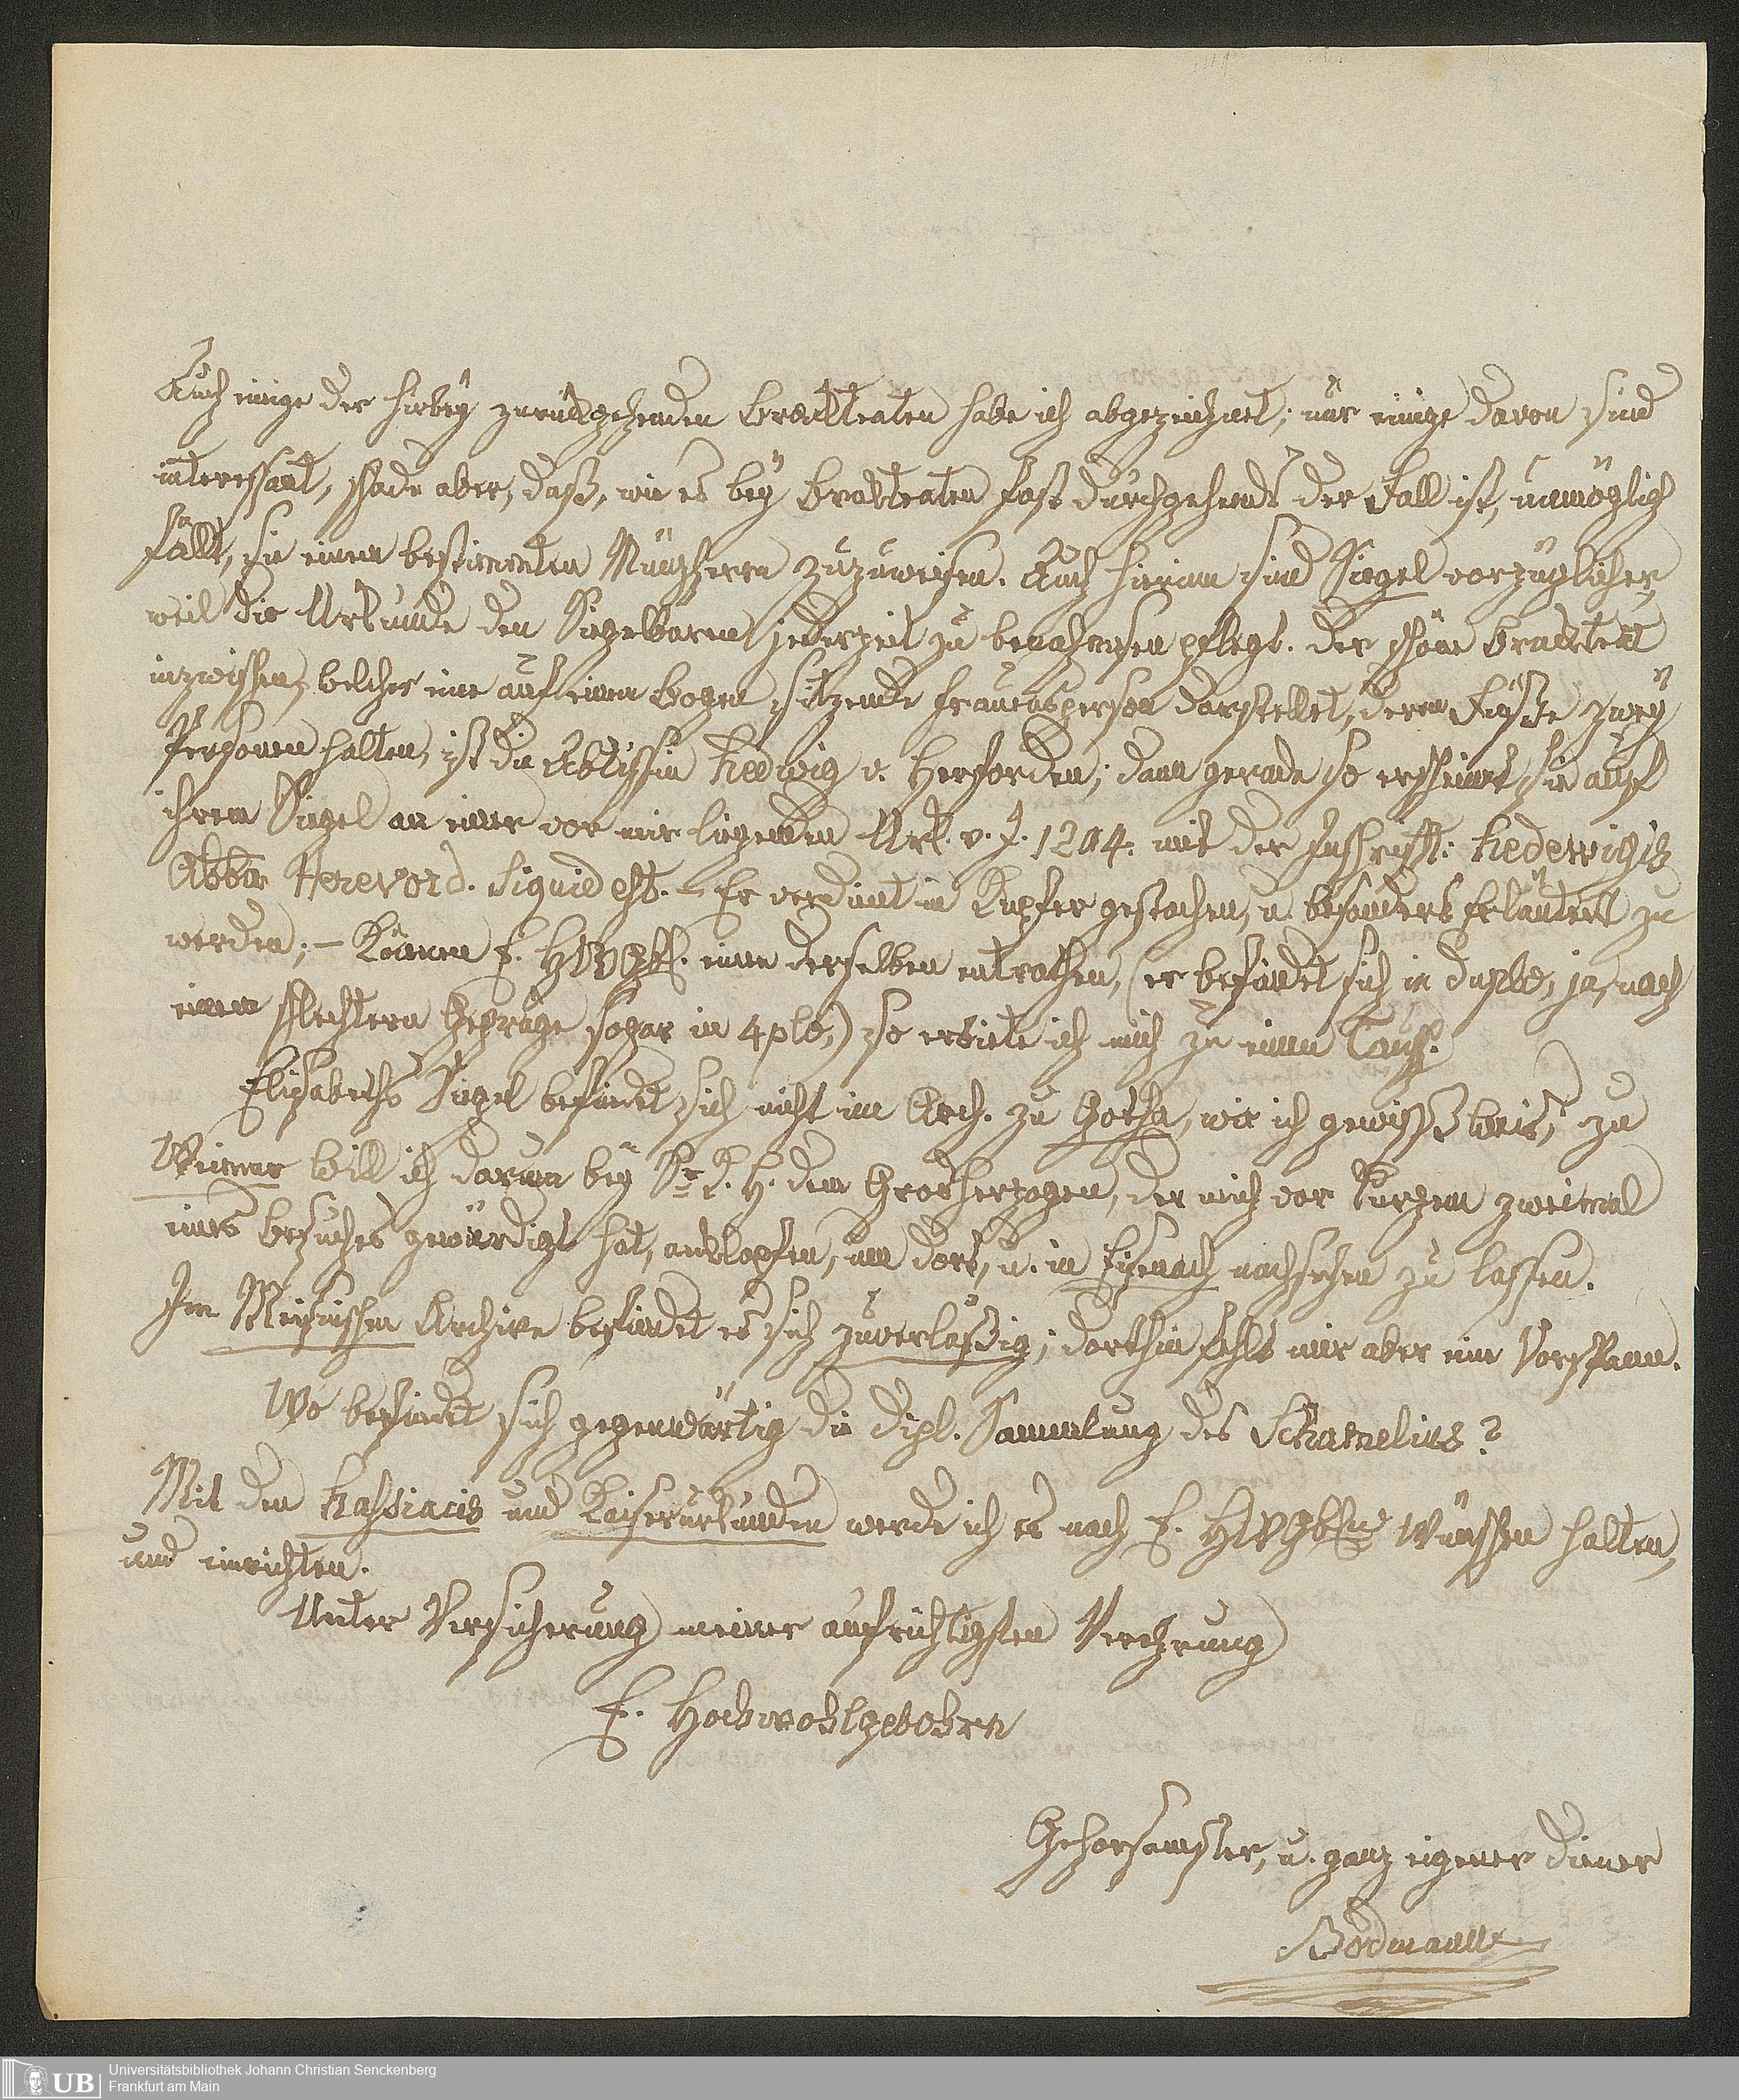 Auch einige der hiebey zurückgehenden Bracteaten habe ich abgezeichnet; nur einige davon sind
interessant, schade aber, daß, wie es bey Bracteaten fast durchgehends der Fall ist, unmöglich
fällt, sie einem bestimmten Münzherrn zuzuweisen. Auch hierinn sind Siegel vorzüglicher,
weil die Urkunde den Siegelbaren jederzeit zu benahmsen pflegt. Der schöne Bracteat
inzwischen, welcher eine auf einem Bogen sitzende Frauensperson darstellet, deren Füße zwey
Personen halten, ist die Äbtissin Hedwig v. Herforden; dann gerade so erscheint sie auf
ihrem Siegel an einer vor mir liegenden Urk. v. J. 1204. mit der Inschrift: Hedewigis
Abba Herevord. Siquid est. – Er verdient in Kupfer gestochen, u. besonders erläutert zu
werden; – Können E. HWGb. einen derselben entrathen, (er befindet sich in duplo, ja, nach
einem schlechtern Gepräge sogar in 4plo,) so erbiete ich mich zu einem Tausch.
Elisabeths Siegel befindet sich nicht im Arch. zu Gotha, wie ich gewiß weis; zu
Weimar will ich darum bey Sr. K. H. dem Großherzogen, der mich vor Kurzem zweimal
eines Besuches gewürdigt hat, anklopfen, um dort, u. in Eisenach nachsehen zu lassen.
Im Meißnischen Archive befindet es sich zuverläßig; dorthin fehlt mir aber ein Vorspann.
Wo befindet sich gegenwärtig die dipl. Sammlung des Schamelius?
Mit den Hassiacis und Kaiserurkunden werde ich es nach E. HWGb. Wünschen halten,
und einrichten.
Unter Versicherung meiner aufrichtigsten Verehrung
E. Hochwohlgebohrn
Gehorsamster, u. ganz eigener Diener
Bodmann
UB Universitätsbibliothek Johann Christian Senckenberg
Frankfurt am Main